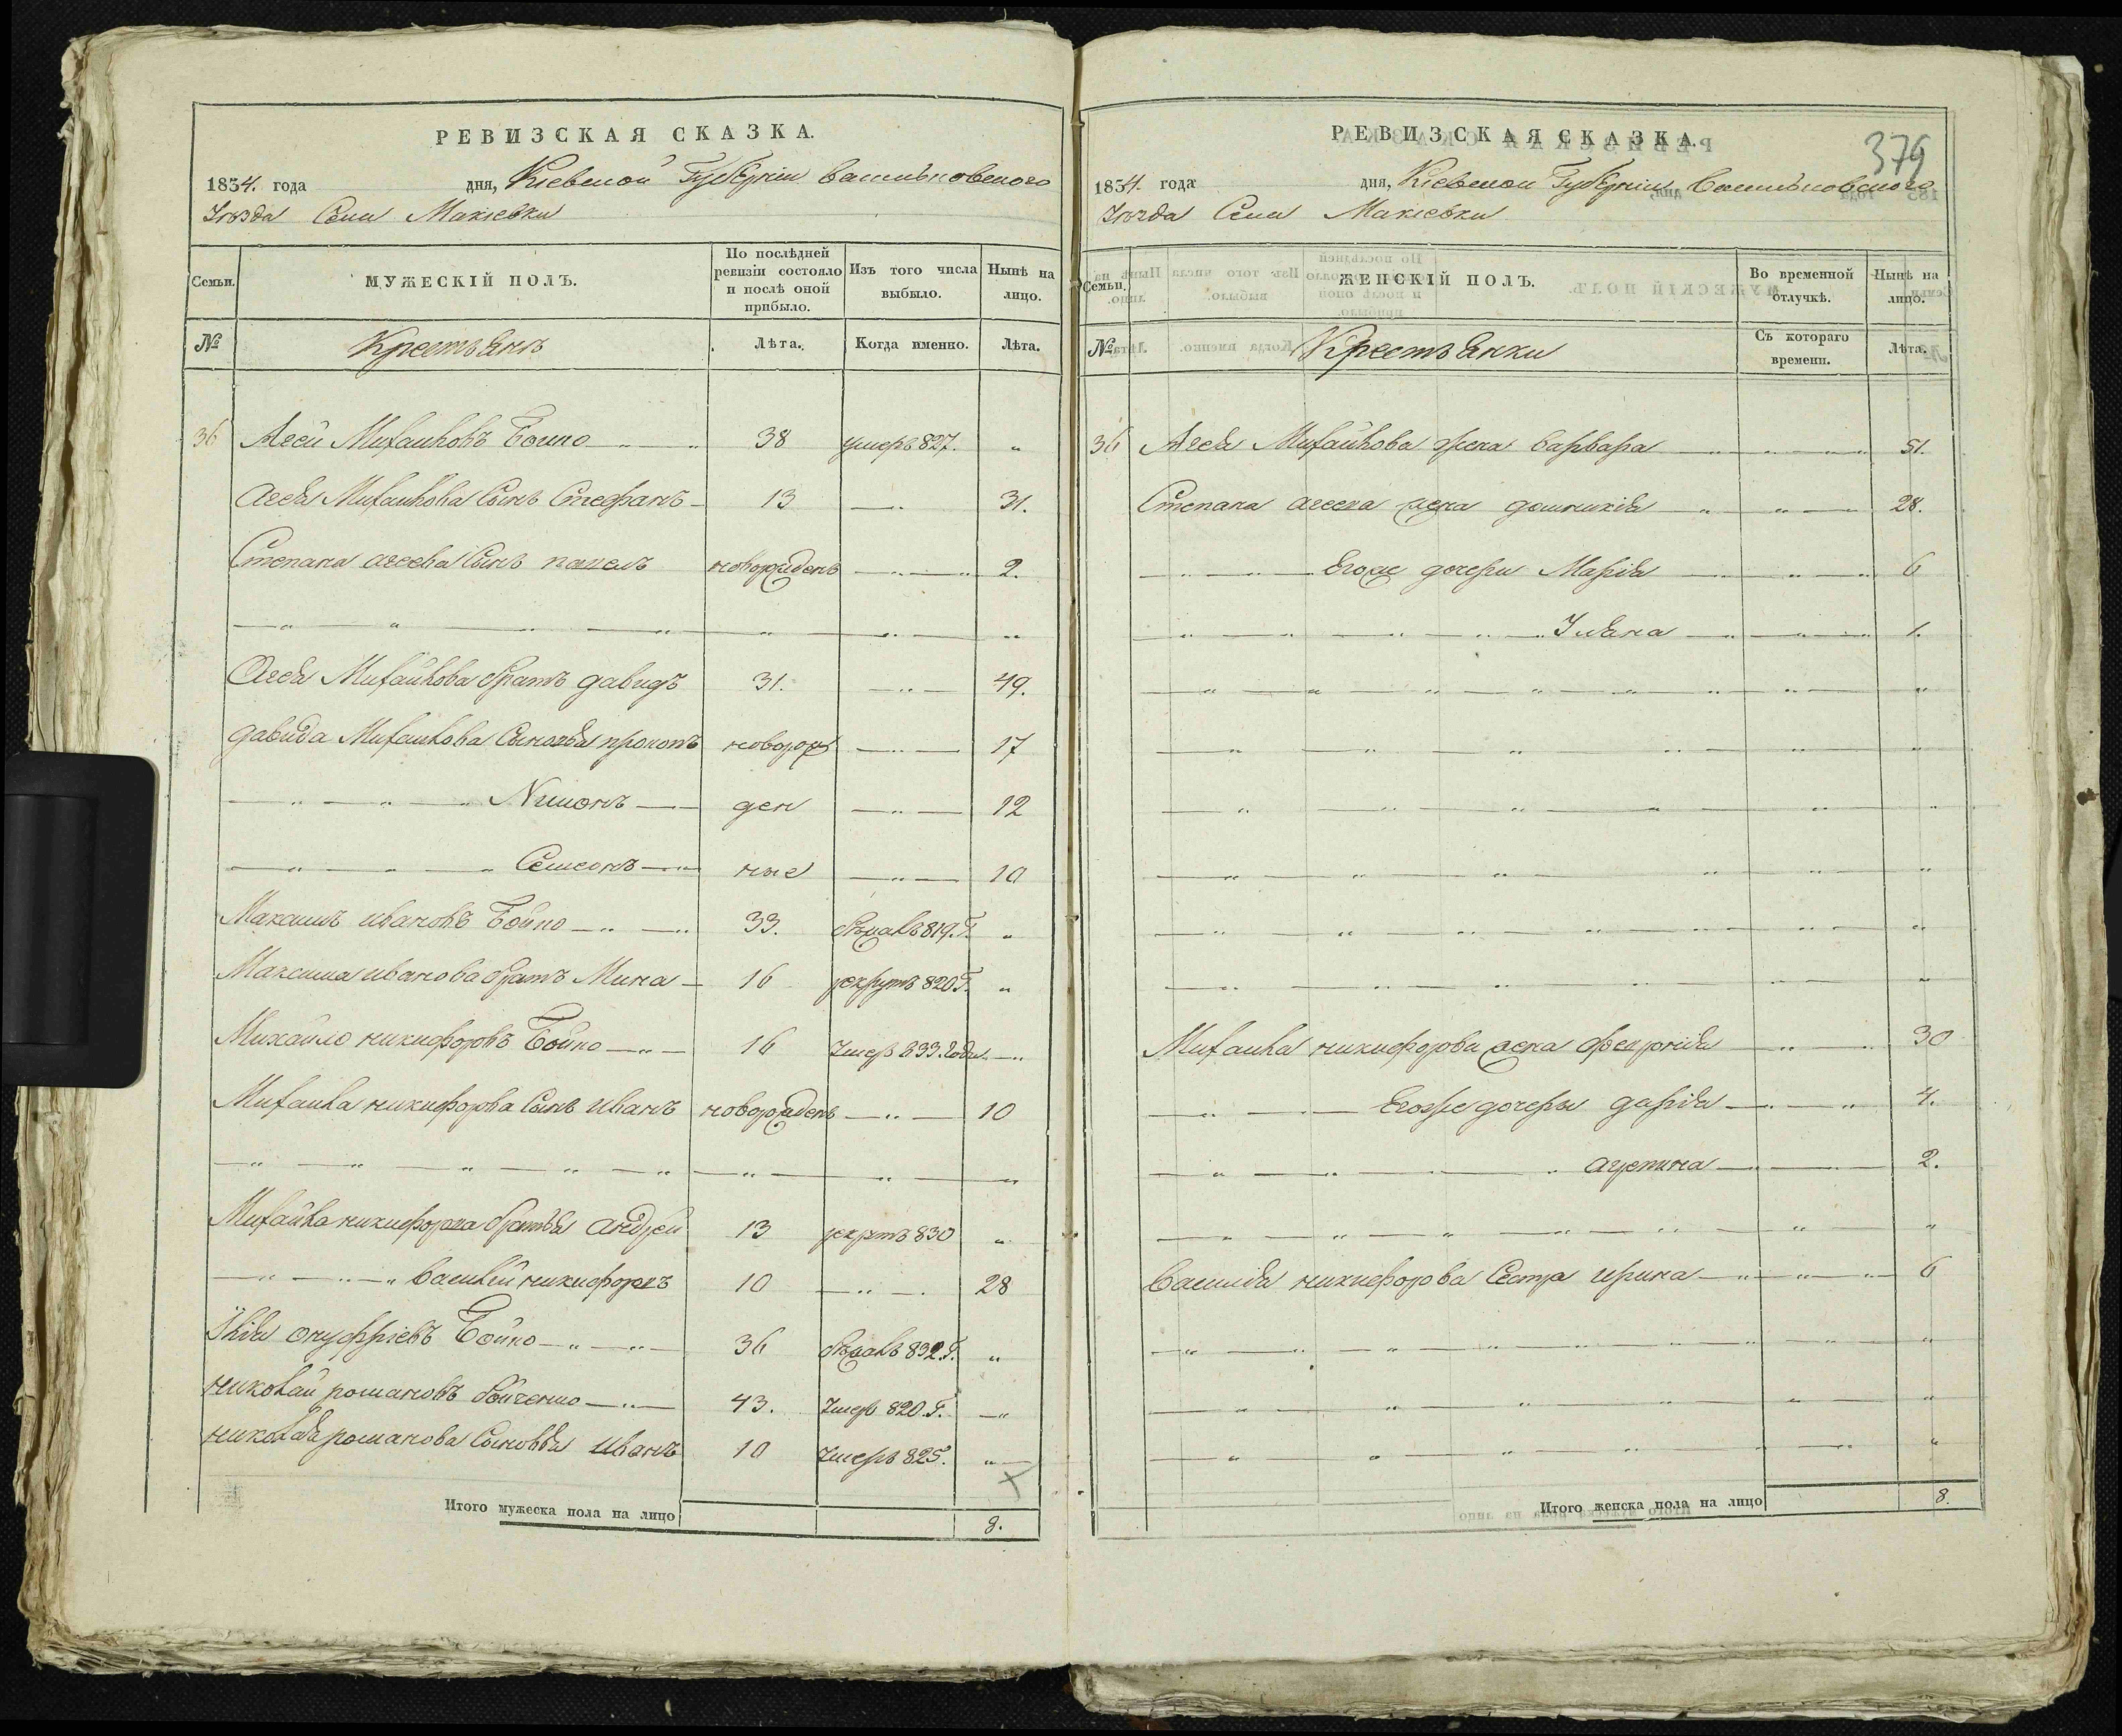 РЕВИЗСКАЯ СКАЗКА.
1834. года дня, Кіевской Губерніи Васильковского
Уѣзда Села Макіевки
Семьи.
МУЖЕСКІЙ ПОЛЪ.
По послѣдней ревизіи состояло и послѣ оной прибыло.
Изъ того числа выбыло.
Нынѣ на лицо.
№
Крестьянъ
Лѣта.
Когда именно.
Лѣта.
36 Агей Михайловъ Бойко 38 умеръ 827. "
Агея Михайлова Сынъ Стефанъ 13 31.
Степана агеева Сынъ павелъ новорожденъ 2.
Агея Михайлова братъ давидъ 31. 49.
давида Михайлова Сыновья прокопъ новорож 17
Никонъ ден 12
Семионъ ные 10
Максимъ ивановъ Бойко 33. бѣжалъ 819. Г. "
Максима иванова братъ Мина 16 рекрутъ 820 Г. "
Михайло никифоровъ Бойко 16 Умеръ 833. Года
Михайла никифорова Сынъ иванъ новорожденъ 10
Михайла никифорова братья андрей 13 рекрутъ 830 "
василей никифоровъ 10 28
Илія онуффріевъ Бойко 36 бѣжалъ 832. Г. "
николай романовъ бойченко 43. Умеръ 820. Г. "
николая романова Сыновья иванъ 10 Умеръ 825. "
Итого мужеска пола на лицо 8.
379
РЕВИЗСКАЯ СКАЗКА.
1834. года дня, Кіевской Губерніи Васильковского
Уѣзда Села Макіевки
Семьи.
ЖЕНСКІЙ ПОЛЪ.
Во временной отлучкѣ.
Нынѣ на лицо.
№
Крестьянки
Съ котораго времени.
Лѣта.
36 Агея Михайлова жена варвара 51.
Степана агеева жена домникія 28.
Егоже дочери Марія 6
Уляна 1.
Михайла никифорова жена февронія 30
Егоже дочеры дарія 4.
агрепина 2.
василія никифорова Сестра ирина 6
Итого женска пола на лицо 8.